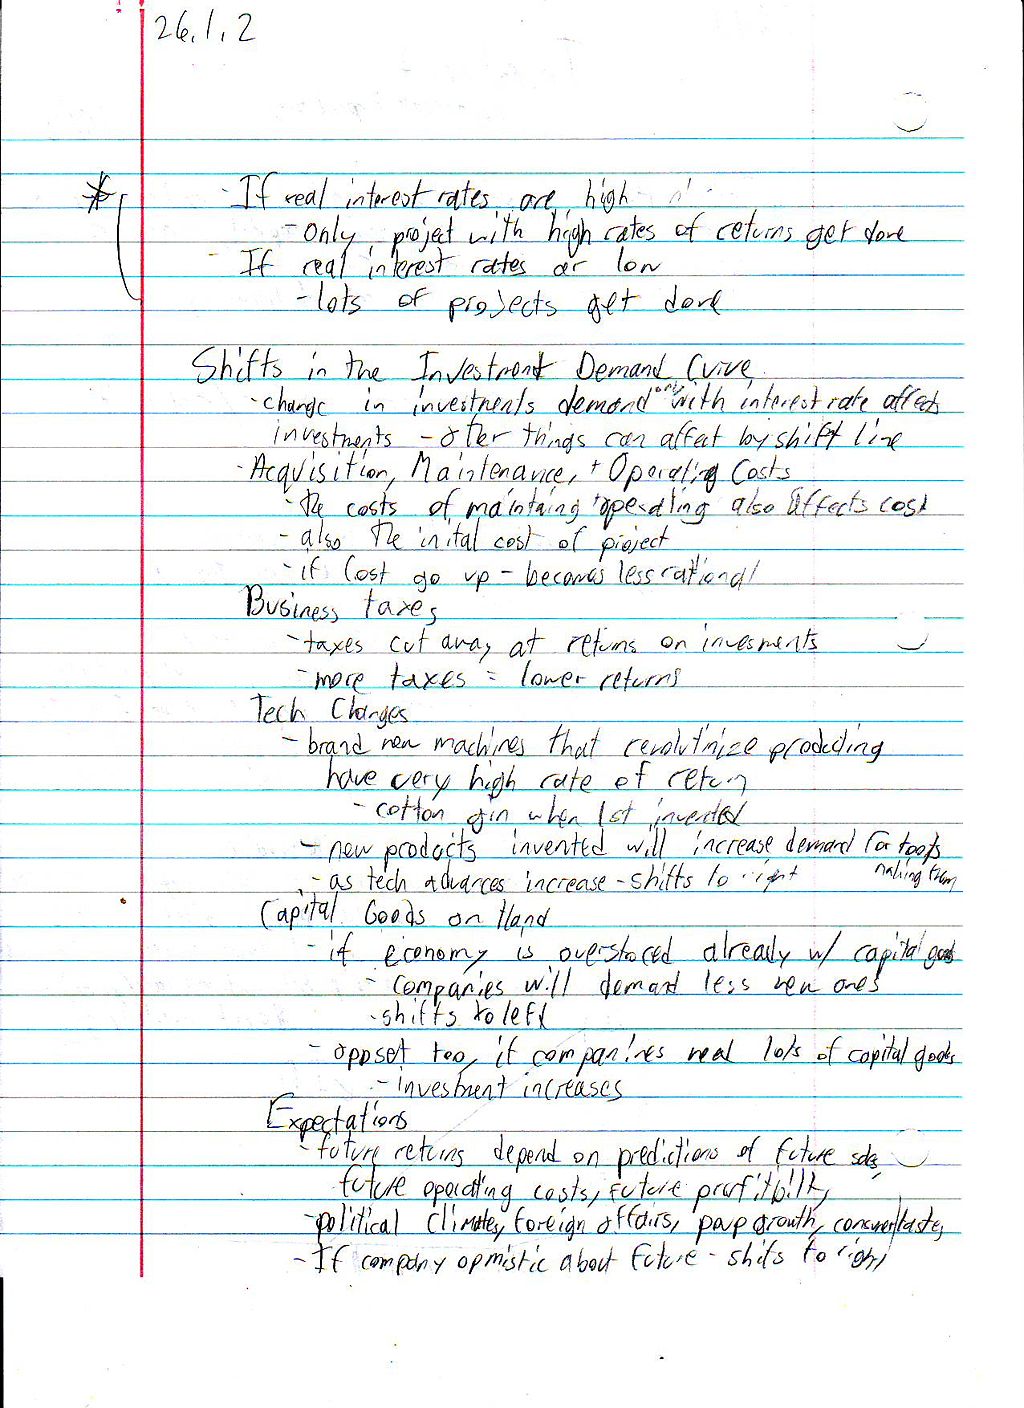 26.1.2
* - If real interest rates are high
- Only project with high rates of returns get done
- If real interest rates ar low
- lots of projects get done
Shifts in the Investment Demand Curve
- change in investments demand only with interest rate affects
investments - other things can affect by shift line
- Acquisition, Maintenance, + Operating Costs
- the costs of maintaing + operating also affects cost
- also the inital cost of project
- if cost go up - becomes less rational
Business taxes
- taxes cut away at returns on invesments
- more taxes = lower returns
Tech Changes
- brand new machines that revolutinize producting
have very high rate of return
- cotton gin when 1st invented
- new products invented will increase demand for tools
making them
- as tech advances increase - shifts to right
Capital Goods on Hand
- if economy is overstoced already w/ capital goods
- companies will demand less new ones
- shifts to left
- opposet too, if companines need lots of capital goods
- investment increases
Expectations
- future returns depend on predictions of future sales,
future operating costs, future profitbility
- political climates, foreign affairs, poup growth, consumer tastes
- If company opmistic about future - shifs to right